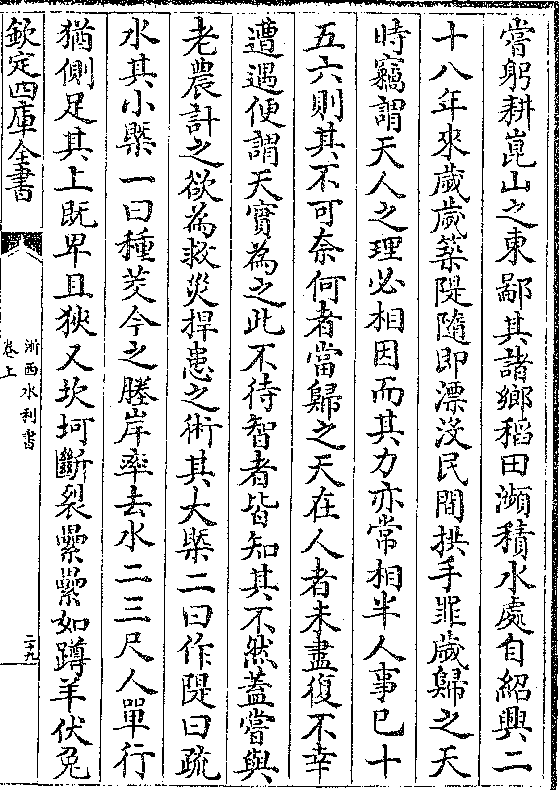 嘗躬耕崑山之東鄙其諸鄉稻田瀕積水處自紹興二
十八年來歲歲築隄隨即漂沒民間拱手罪歲歸之天
時竊謂天人之理必相因而其力亦常相半人事已十
五六則其不可奈何者當歸之天在人者未盡復不幸
遭遇便謂天實為之此不待智者皆知其不然蓋嘗與
老農計之欲為救災捍患之術其大槩二曰作隄曰疏
水其小槩一曰種茭今之塍岸率去水二三尺人單行
猶側足其上既卑且狹又坎坷斷裂纍纍如蹲羊伏兔
欽定四庫全書
浙西水利書
卷上
二十九